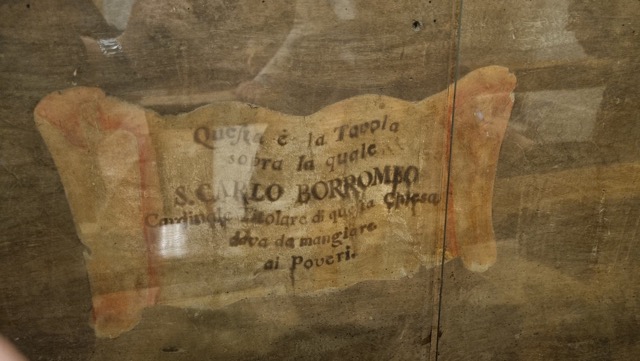 Questa è la Tavola
sopra la quale
S. CARLO BORROMEO
Cardinale Titolare di questa Chiesa
dava da mangiare
ai Poveri.